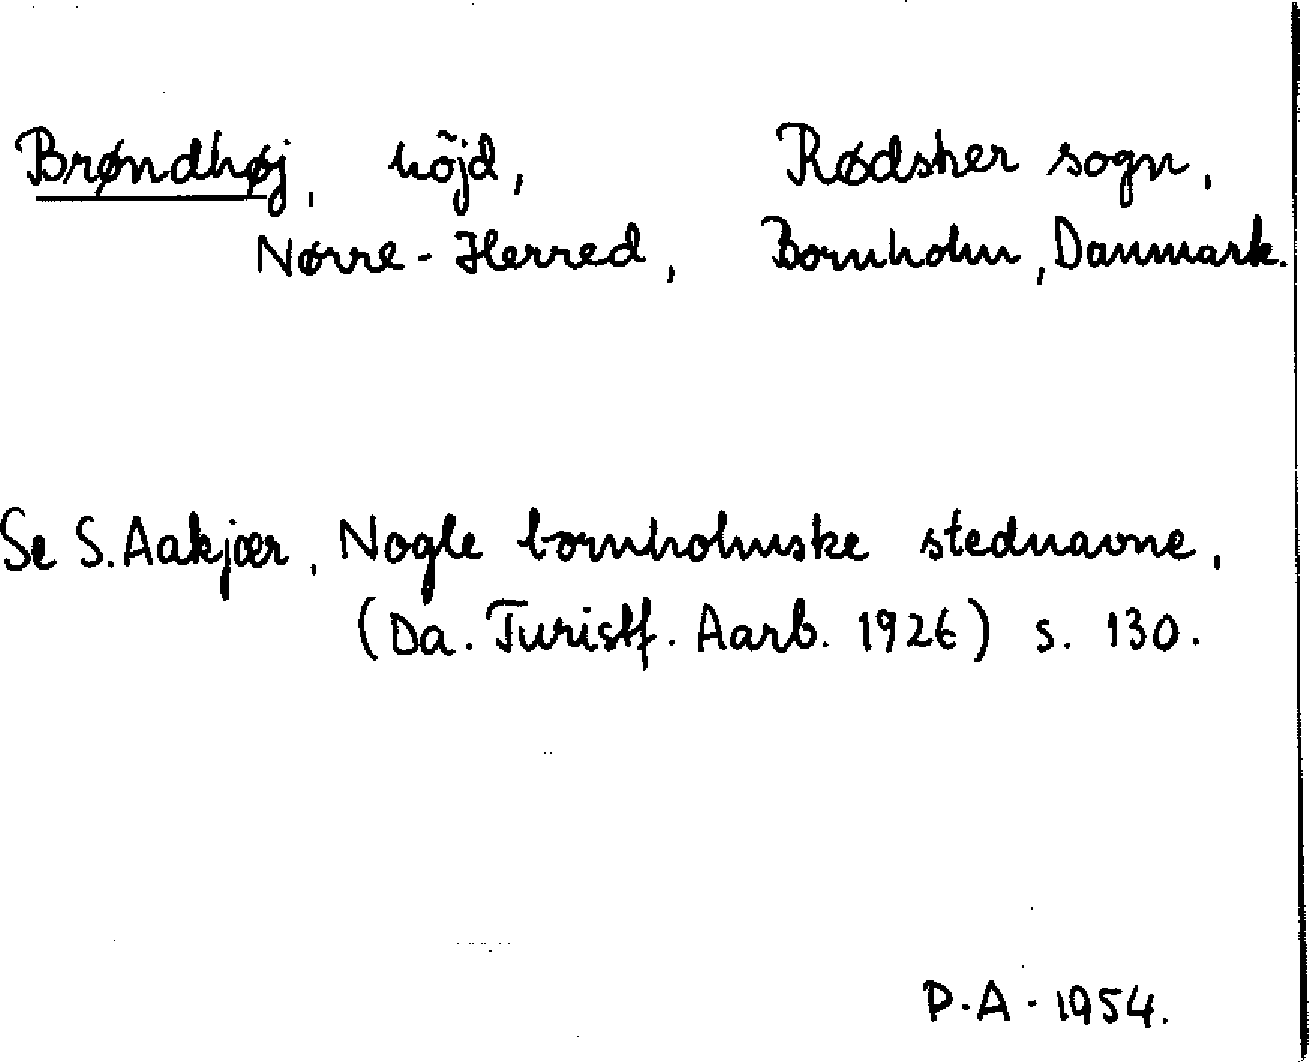 Brøndhøj, höjd, Rødsker sogn,
Nørre-Herred, Bornholm, Danmark.
Se S. Aakjær, Nogle bornholmske stednavne,
(Da. Turistf. Aarb. 1926) s. 130.
P.A. 1954.